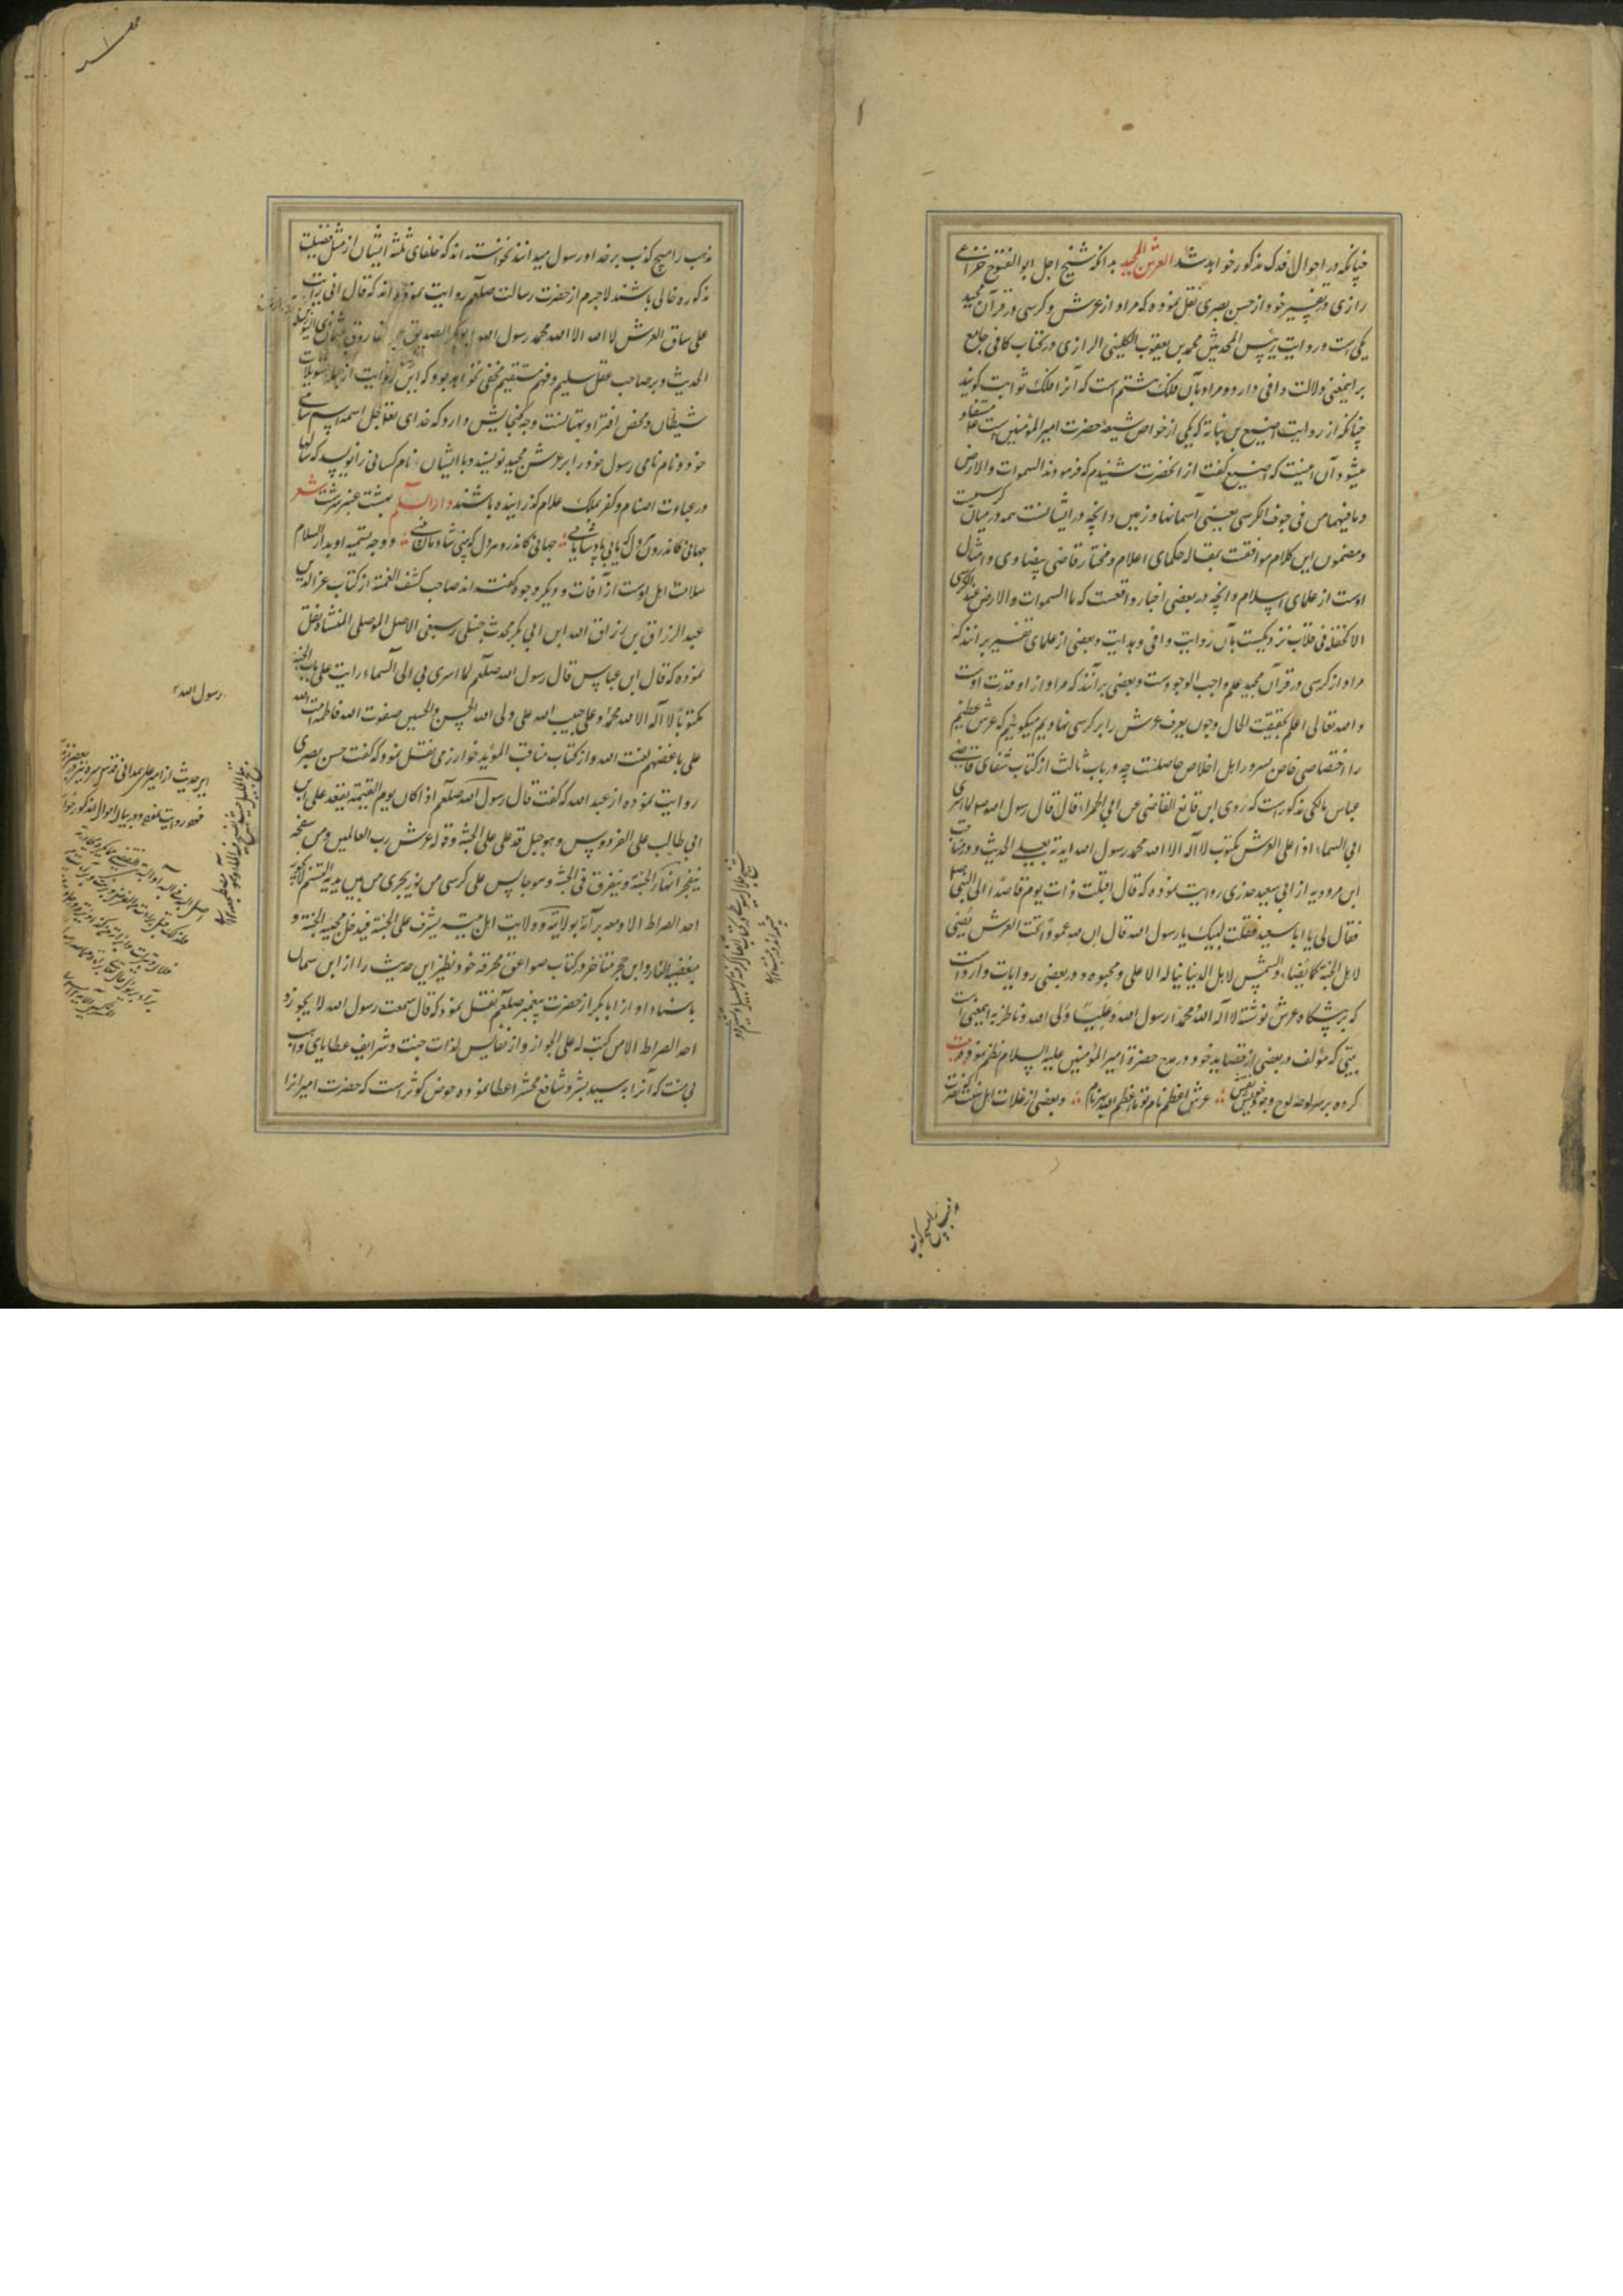 چنانکه در احوال فدک مذکور خواهد شد العرش المجید بدانکه شیخ اجل ابو الفتوح خزاعی
رازی در تفسیر خود از حسن بصری نقل نموده که مراد از عرش و کرسی در قرآن مجید
یکی است و روایت رئیس المحدثین محمد بن یعقوب الکلینی الرازی در کتاب کافی جامع
بر اینمعنی دلالت وافی دارد و مراد بآن فلک هشتم است که آنرا فلک ثوابت گویند
چنانکه از روایت اصبغ بن نباته که یکی از خواص شیعه حضرت امیر المؤمنین است مستفاد
میشود و آن اینست که اصبغ گفت از آنحضرت شنیدم که فرمودند السموات والارض
وما فیهما من فی جوف الکرسی یعنی آسمانها و زمین و آنچه در ایشانست همه در میان کرسیست
ومضمون این کلام موافقت بمقاله حکمای اعلام و مختار قاضی بیضاوی و امثال
اوست از علمای اسلام و آنچه در بعضی اخبار واقعست که ما السموات والارض عند الکرسی
الا کحلقة فی فلاة نزدیکست بآن روایت وافی هدایت و بعضی از علمای تفسیر برانند که
مراد از کرسی در قرآن مجید علم واجب الوجودست و بعضی برآنند که مراد از او قدرت اوست
والله تعالی اعلم بحقیقت الحال و چون بعرف عرش را بر کرسی نهادیم میگوئیم که عرش عظیم
را اختصاصی خاص بسرور اهل اخلاص حاصلست چه در باب ثالث از کتاب شفای قاضی
عیاض مالکی مذکورست که روی ابن قانع القاضی عن ابی الحمراء قال قال رسول الله ص لما اسری
الی السماء اذا علی العرش مکتوب لا اله الا الله محمد رسول الله ایدته بعلی الحدیث و در مناقب
ابن مردویه از ابی سعید خدری روایت نموده که قال اقبلت ذات یوم قاصدا الی النبی صلعم
فقال لی یا ابا سعید فقلت لبیک یا رسول الله قال ان لله عمودا تحت العرش یضئ
لاهل الجنة کما یضئ الشمس لاهل الدنیا لا یناله الا علی و محبوه و در بعضی روایات وارد است
که بر پیشگاه عرش نوشته لا اله الا الله محمدا رسول الله و علیا ولی الله و ناظر به اینمعنی است
بیتی که مؤلف در بعضی از قصاید خود در مدح حضرة امیر المؤمنین علیه السلام نظم نموده بیت
کرده بر سر لوحه لوح وجود خویش نقش عرش اعظم نام تو تا اعظم افتد نام و بعضی از غلات اهل سنت که نصرت
مذهب را هیچ کذب بر خدا و رسول میدانند نخواسته اند که خلفای ثلثه ایشان از مثل فضیلت
مذکوره خالی باشند لاجرم از حضرت رسالت صلعم روایت نموده اند که قال انی رایت
علی ساق العرش لا اله الا الله محمد رسول الله ابو بکر الصدیق عمر الفاروق عثمان ذی النورین
الحدیث و بر صاحب عقل سلیم و فهم مستقیم مخفی نخواهد بود که این روایت از جمله تسویلات
شیطان و محض افترا و بهتانست و چه گنجایش دارد که خدای تعالی جل اسمه اسم سامی
خود و نام نامی رسول خود را بر عرش مجید نویسد و با ایشان نام کسانی را نویسد که سالها
در عبادت اصنام و کفر بملک علام گذرانیده باشند دار السلام بهشت عنبر سرشت شعر
جهانی کاندرو هر دل که یابی پادشا یابی جهانی کاندرو هر دل که بینی شادمان بینی و وجه تسمیه او بدار السلام
سلامت اهل اوست از آفات و دیگر وجوه گفته اند صاحب کشف الغمه از کتاب عز الدین
عبد الرزاق بن رزق الله ابن ابی بکر محدث حنبلی رسعنی الاصل الموصلی المنشأ نقل
نموده که قال ابن عباس قال رسول الله صلعم لما اسری بی الی السماء رایت علی باب الجنة
مکتوبا لا اله الا الله محمد و علی حبیب الله علی ولی الله الحسن والحسین صفوت الله فاطمه امت الله
علی باغضهم لعنت الله و از کتاب مناقب المؤید خوارزمی نقل نموده که گفت حسن بصری
روایت نموده از عبد الله که گفت قال رسول الله صلعم اذا کان یوم القیمة یقعد علی ابن
ابی طالب علی الفردوس و هو جبل قد علی علی الجنة و فوقه عرش رب العالمین و من سفحه
ینفجر انهار الجنة و یتفرق فی الجنة و هو جالس علی کرسی من نور یجری من بین یدیه التسنیم لا یجوز
احد الصراط الا و معه براءة بولایته و ولایت اهل بیته یشرف علی الجنة فیدخل محبیه الجنة و
مبغضیه النار و ابن حجر متاخر در کتاب صواعق محرقه خود نظیر این حدیث را از ابن سمان
باسناد او از ابا بکر از حضرت پیغمبر صلعم نقل نموده که قال سمعت رسول الله لا یجوز
احد الصراط الا من کتب له علی الجواز و از نفایس لذات جنت و شرایف عطایای واهب
بی منت که آنرا به سید بشر و شافع محشر اعطا نموده حوض کوثر است که حضرت امیر انرا
رسول الله
این حدیث از امیر علی همدانی قدس سره نیز